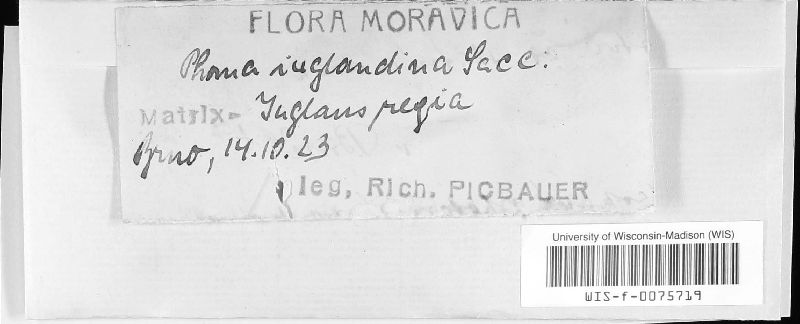 FLORA MORAVICA
Phoma iuglandina Sacc.
Matrix- Iuglans regia
Brno, 14.10.23
leg, Rich. PICBAUER
University of Wisconsin-Madison (WIS)
WIS-f-0075719